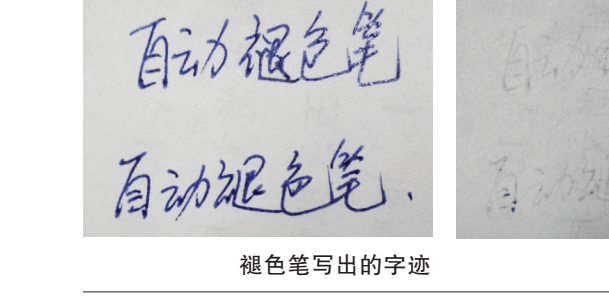 自动褪色笔
自动褪色笔.
自动
自动褪
褪色笔写出的字迹